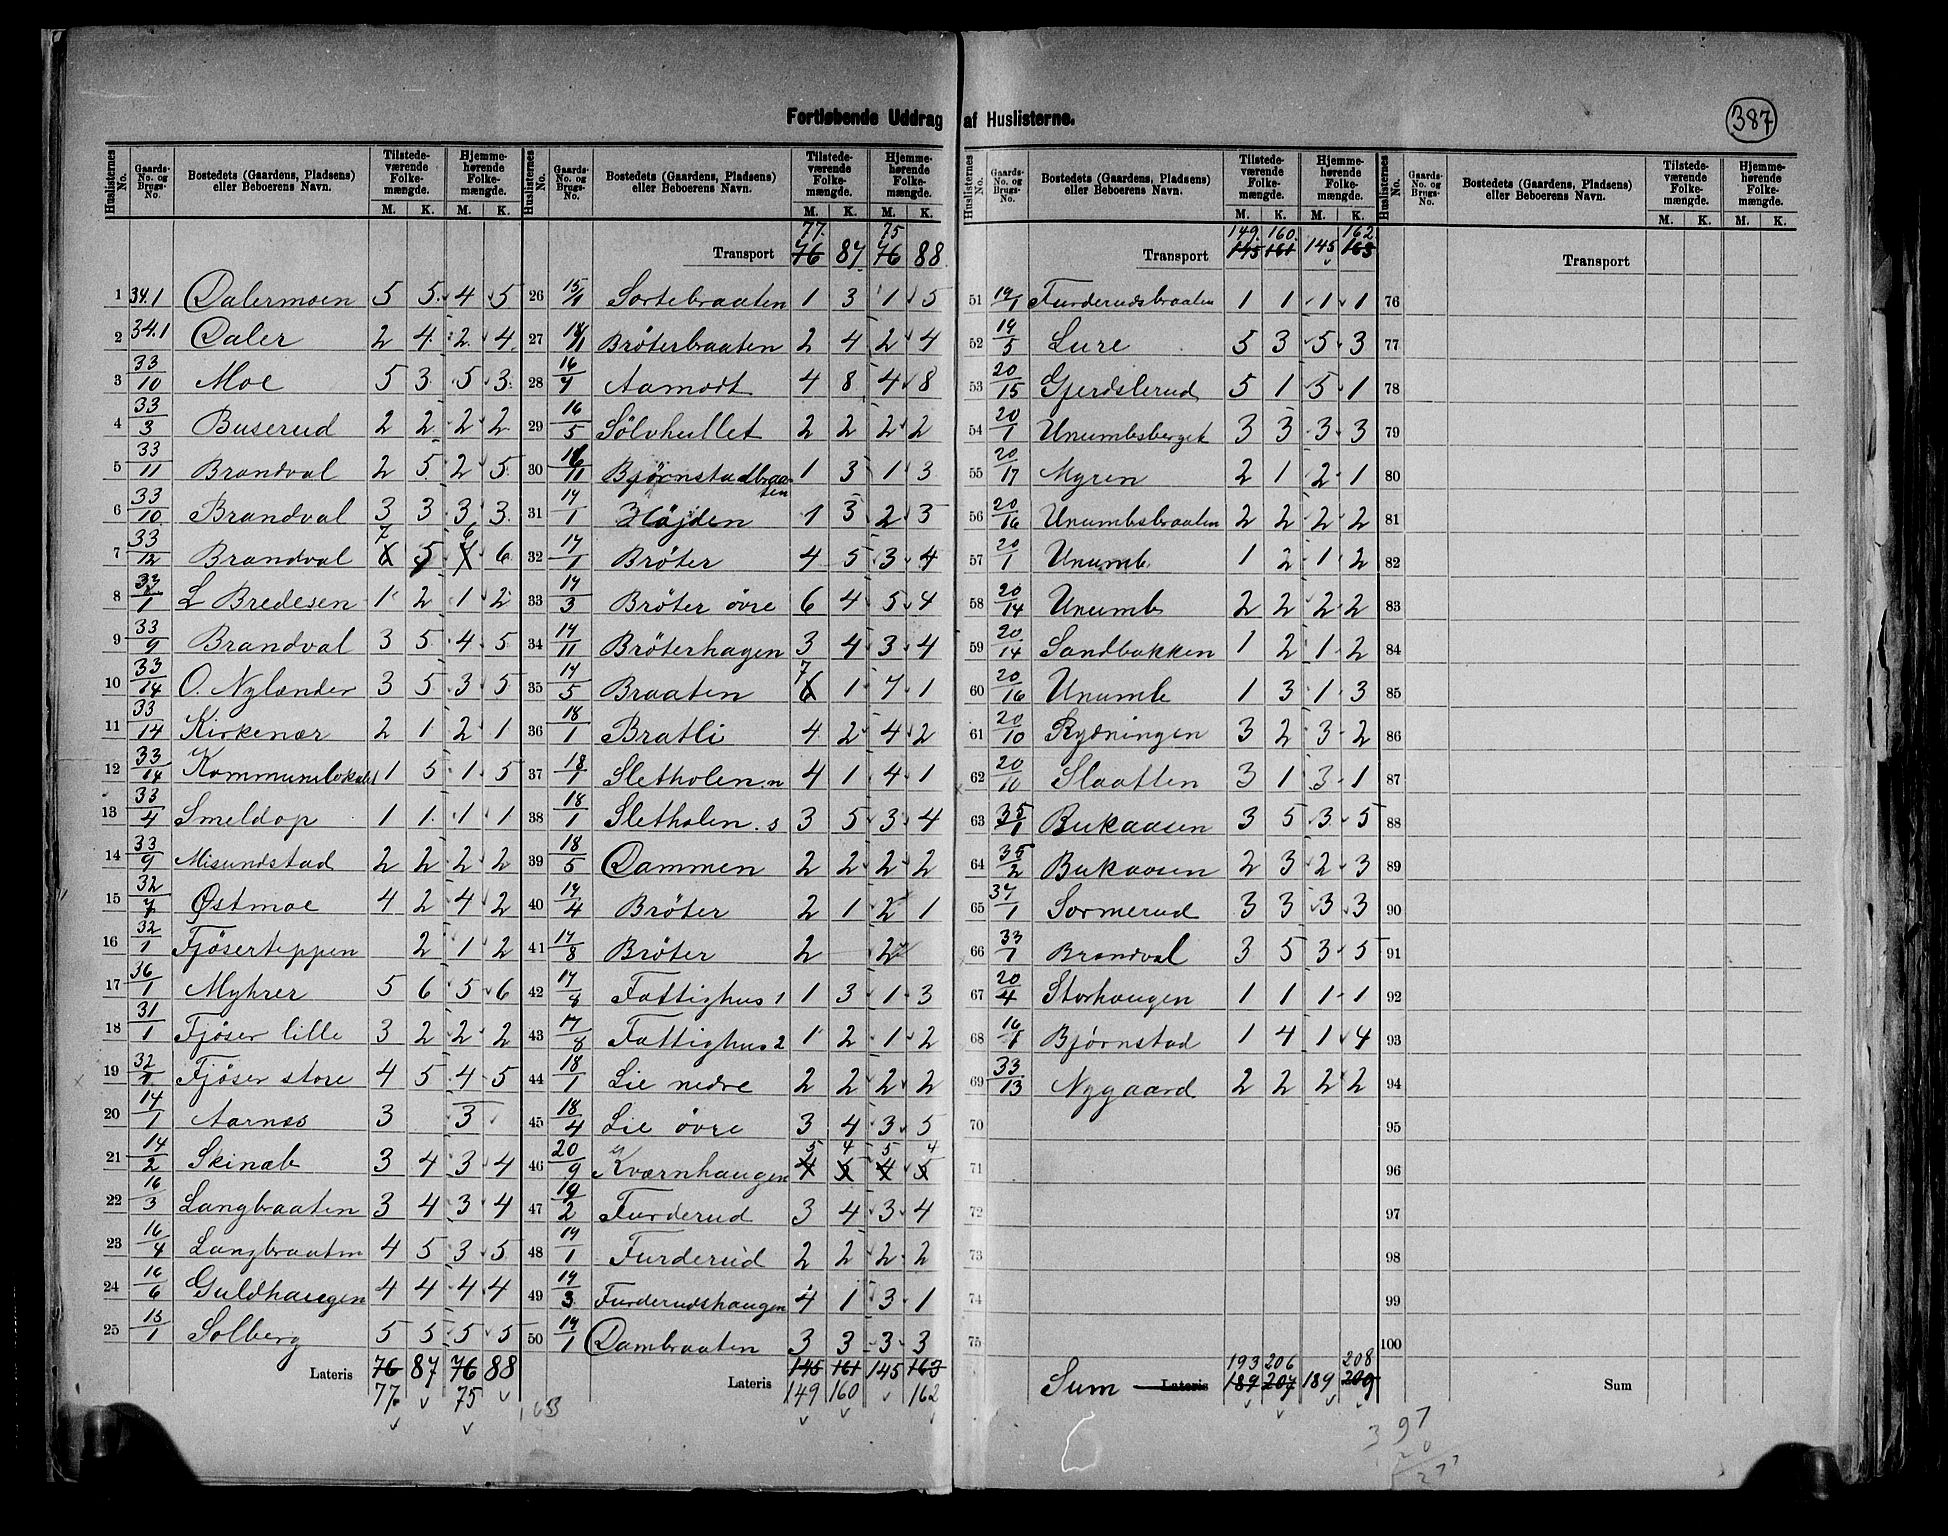 387
Fortløbende Uddrag af Huslisterne.
Huslisternes No. | Gaards-No. og Brugs-No. | Bostedets (Gaardens, Pladsens) eller Beboerens Navn. | Tilstedeværende Folkemængde. M. K. | Hjemmehørende Folkemængde. M. K.
1 34.1 Dalermoen 5 5 4 5
2 34.1 Daler 2 4 2 4
3 33/10 Moe 5 3 5 3
4 33/3 Buserud 2 2 2 2
5 33/11 Brandval 2 5 2 5
6 33/10 Brandval 3 3 3 3
7 33/12 Brandval 7 5 6 6
8 33/1 L Bredesen 1 2 1 2
9 33/9 Brandval 3 5 4 5
10 33/14 O. Nylænder 3 5 3 5
11 33/14 Kirkenær 2 1 2 1
12 33/14 Kommunelokalet 1 5 1 5
13 33/4 Smeldop 1 1 1 1
14 33/9 Misundstad 2 2 2 2
15 32/7 Østmoe 4 2 4 2
16 32/1 Fjøserteppen 2 1 2
17 36/1 Myhrer 5 6 5 6
18 31/1 Fjöser lille 3 2 2 2
19 32/1 Fjöser store 4 5 4 5
20 14/1 Aarnes 3 3
21 14/2 Skinab 3 4 3 4
22 16/3 Langbraaten 3 4 3 4
23 16/4 Langbraaten 4 5 3 5
24 16/6 Guldhaugen 4 4 4 4
25 15/1 Solberg 5 5 5 5
Lateris 76 87 76 88
77. 75
Transport 77. 76 87 75 76 88
26 15/1 Sortebraaten 1 3 1 5
27 18/1 Brøterbraaten 2 4 2 4
28 16/7 Aamodt 4 8 4 8
29 16/5 Sølvhullet 2 2 2 2
30 16/11 Bjørnstadbraaten 1 3 1 3
31 17/1 Höjden 1 3 2 3
32 17/1 Bröter 4 5 3 4
33 17/3 Bröter övre 6 4 5 4
34 17/11 Bröterhagen 3 4 3 4
35 17/5 Braaten 7 1 7 1
36 18/1 Bratli 4 2 4 2
37 18/1 Sletholen. n 4 1 4 1
38 18/1 Sletholen. s 3 5 3 4
39 18/5 Dammen 2 2 2 2
40 17/4 Bröter 2 1 2 1
41 17/8 Bröter 2 2
42 17/8 Fattighus 1 1 3 1 3
43 17/8 Fattighus 2 1 2 1 2
44 18/1 Lie nedre 2 2 2 2
45 18/4 Lie övre 3 4 3 5
46 20/9 Kværnhaugen 5 4 5 4
47 19/2 Furderud 3 4 3 4
48 19/1 Furderud 2 2 2 2
49 19/3 Furderudshaugen 4 1 3 1
50 19/1 Dambraaten 3 3 3 3
Lateris 145 161 145 163
149 160 162
Transport 149. 160. 162.
145 161 145 163
51 19/1 Furderudsbraaten 1 1 1 1
52 19/5 Lure 5 3 5 3
53 20/15 Gjerdslerud 5 1 5 1
54 20/1 Unumbsberget 3 3 3 3
55 20/17 Myren 2 1 2 1
56 20/16 Unumbsbraaten 2 2 2 2
57 20/1 Unumb 1 2 1 2
58 20/14 Unumb 2 2 2 2
59 20/14 Sandbakken 1 2 1 2
60 20/16 Unumb 1 3 1 3
61 20/10 Rydningen 3 2 3 2
62 20/10 Slaatten 3 1 3 1
63 35/1 Bukaasen 3 5 3 5
64 35/2 Bukaasen 2 3 2 3
65 37/1 Sormerud 3 3 3 3
66 33/7 Brandval 3 5 3 5
67 20/4 Storhaugen 1 1 1 1
68 16/1 Bjørnstad 1 4 1 4
69 33/13 Nygaard 2 2 2 2
70
71
72
73
74
75
193 206 208
Sum Lateris 189 207 189 209
Transport
76
77
78
79
80
81
82
83
84
85
86
87
88
89
90
91
92
93
94
95
96
97
98
99
100
Sum
397